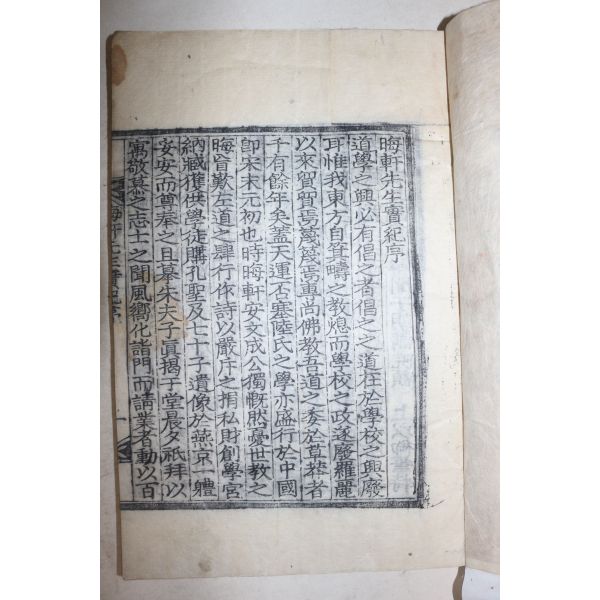 晦軒先生實紀序
道學之興必有倡之者倡之之道在於學校之興廢
耳惟我東方自箕疇之教熄而學校之政遂廢羅麗
以來貿貿焉蔑蔑焉重尚佛教吾道之委於草莽者
千有餘年矣蓋天運否塞陸氏之學亦盛行於中國
卽宋末元初也時晦軒安文成公獨慨然憂世教之
晦盲歎左道之肆行作詩以嚴斥之捐私財創學宮
納臧獲供學徒購孔聖及七十子遺像於燕京一軆
妥安而尊奉之且摹朱夫子眞揭于堂晨夕祇拜以
寓敬慕之志士之聞風嚮化詣門而請業者動以百
晦軒先生實紀序